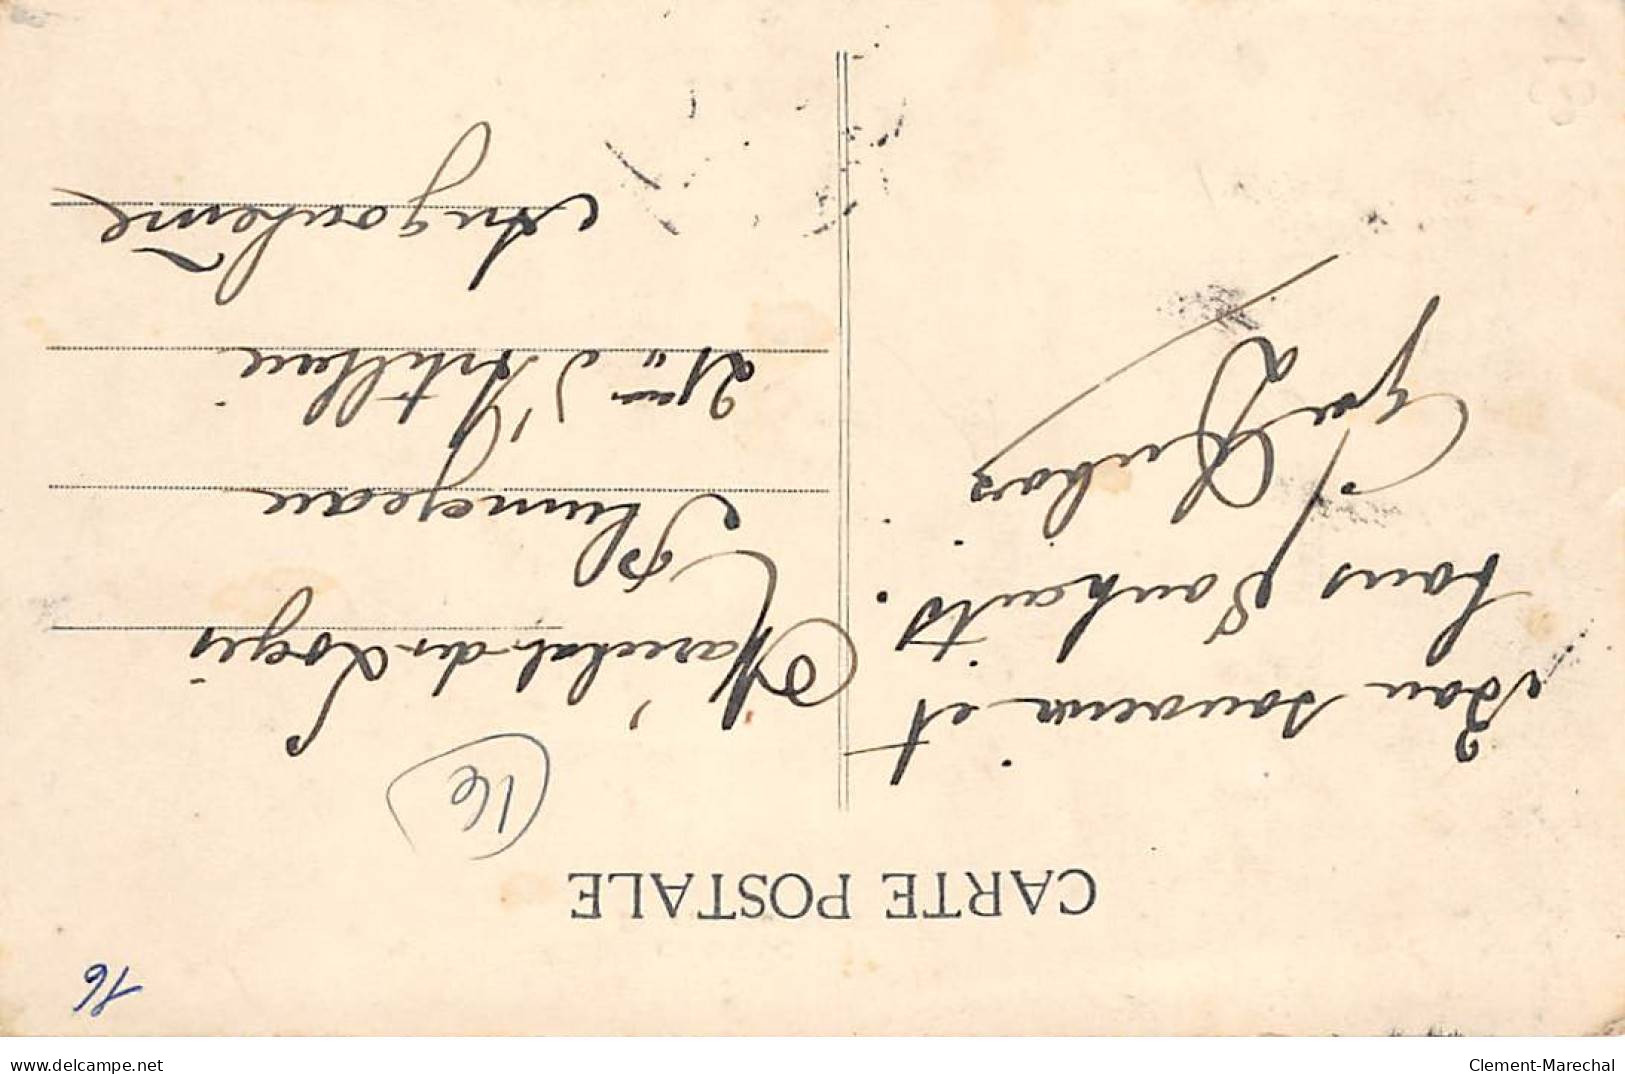 CARTE POSTALE
16
16
Bon souvenir et
bons Souhaits.
Dubois
Maréchal des Logis
Plumejeau
21ème d'Artillerie
Angoulême
www.delcampe.net
Clement-Marechal